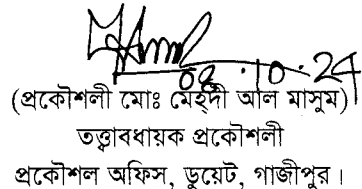 08.10.24
(প্রকৌশলী মোঃ মেহ্দী আল মাসুম)
তত্ত্বাবধায়ক প্রকৌশলী
প্রকৌশল অফিস, ডুয়েট, গাজীপুর।